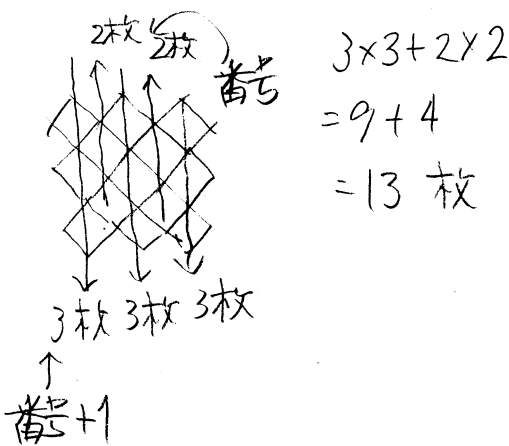 2枚 2枚
番号
3×3+2×2
=9+4
=13 枚
3枚 3枚 3枚
番号+1